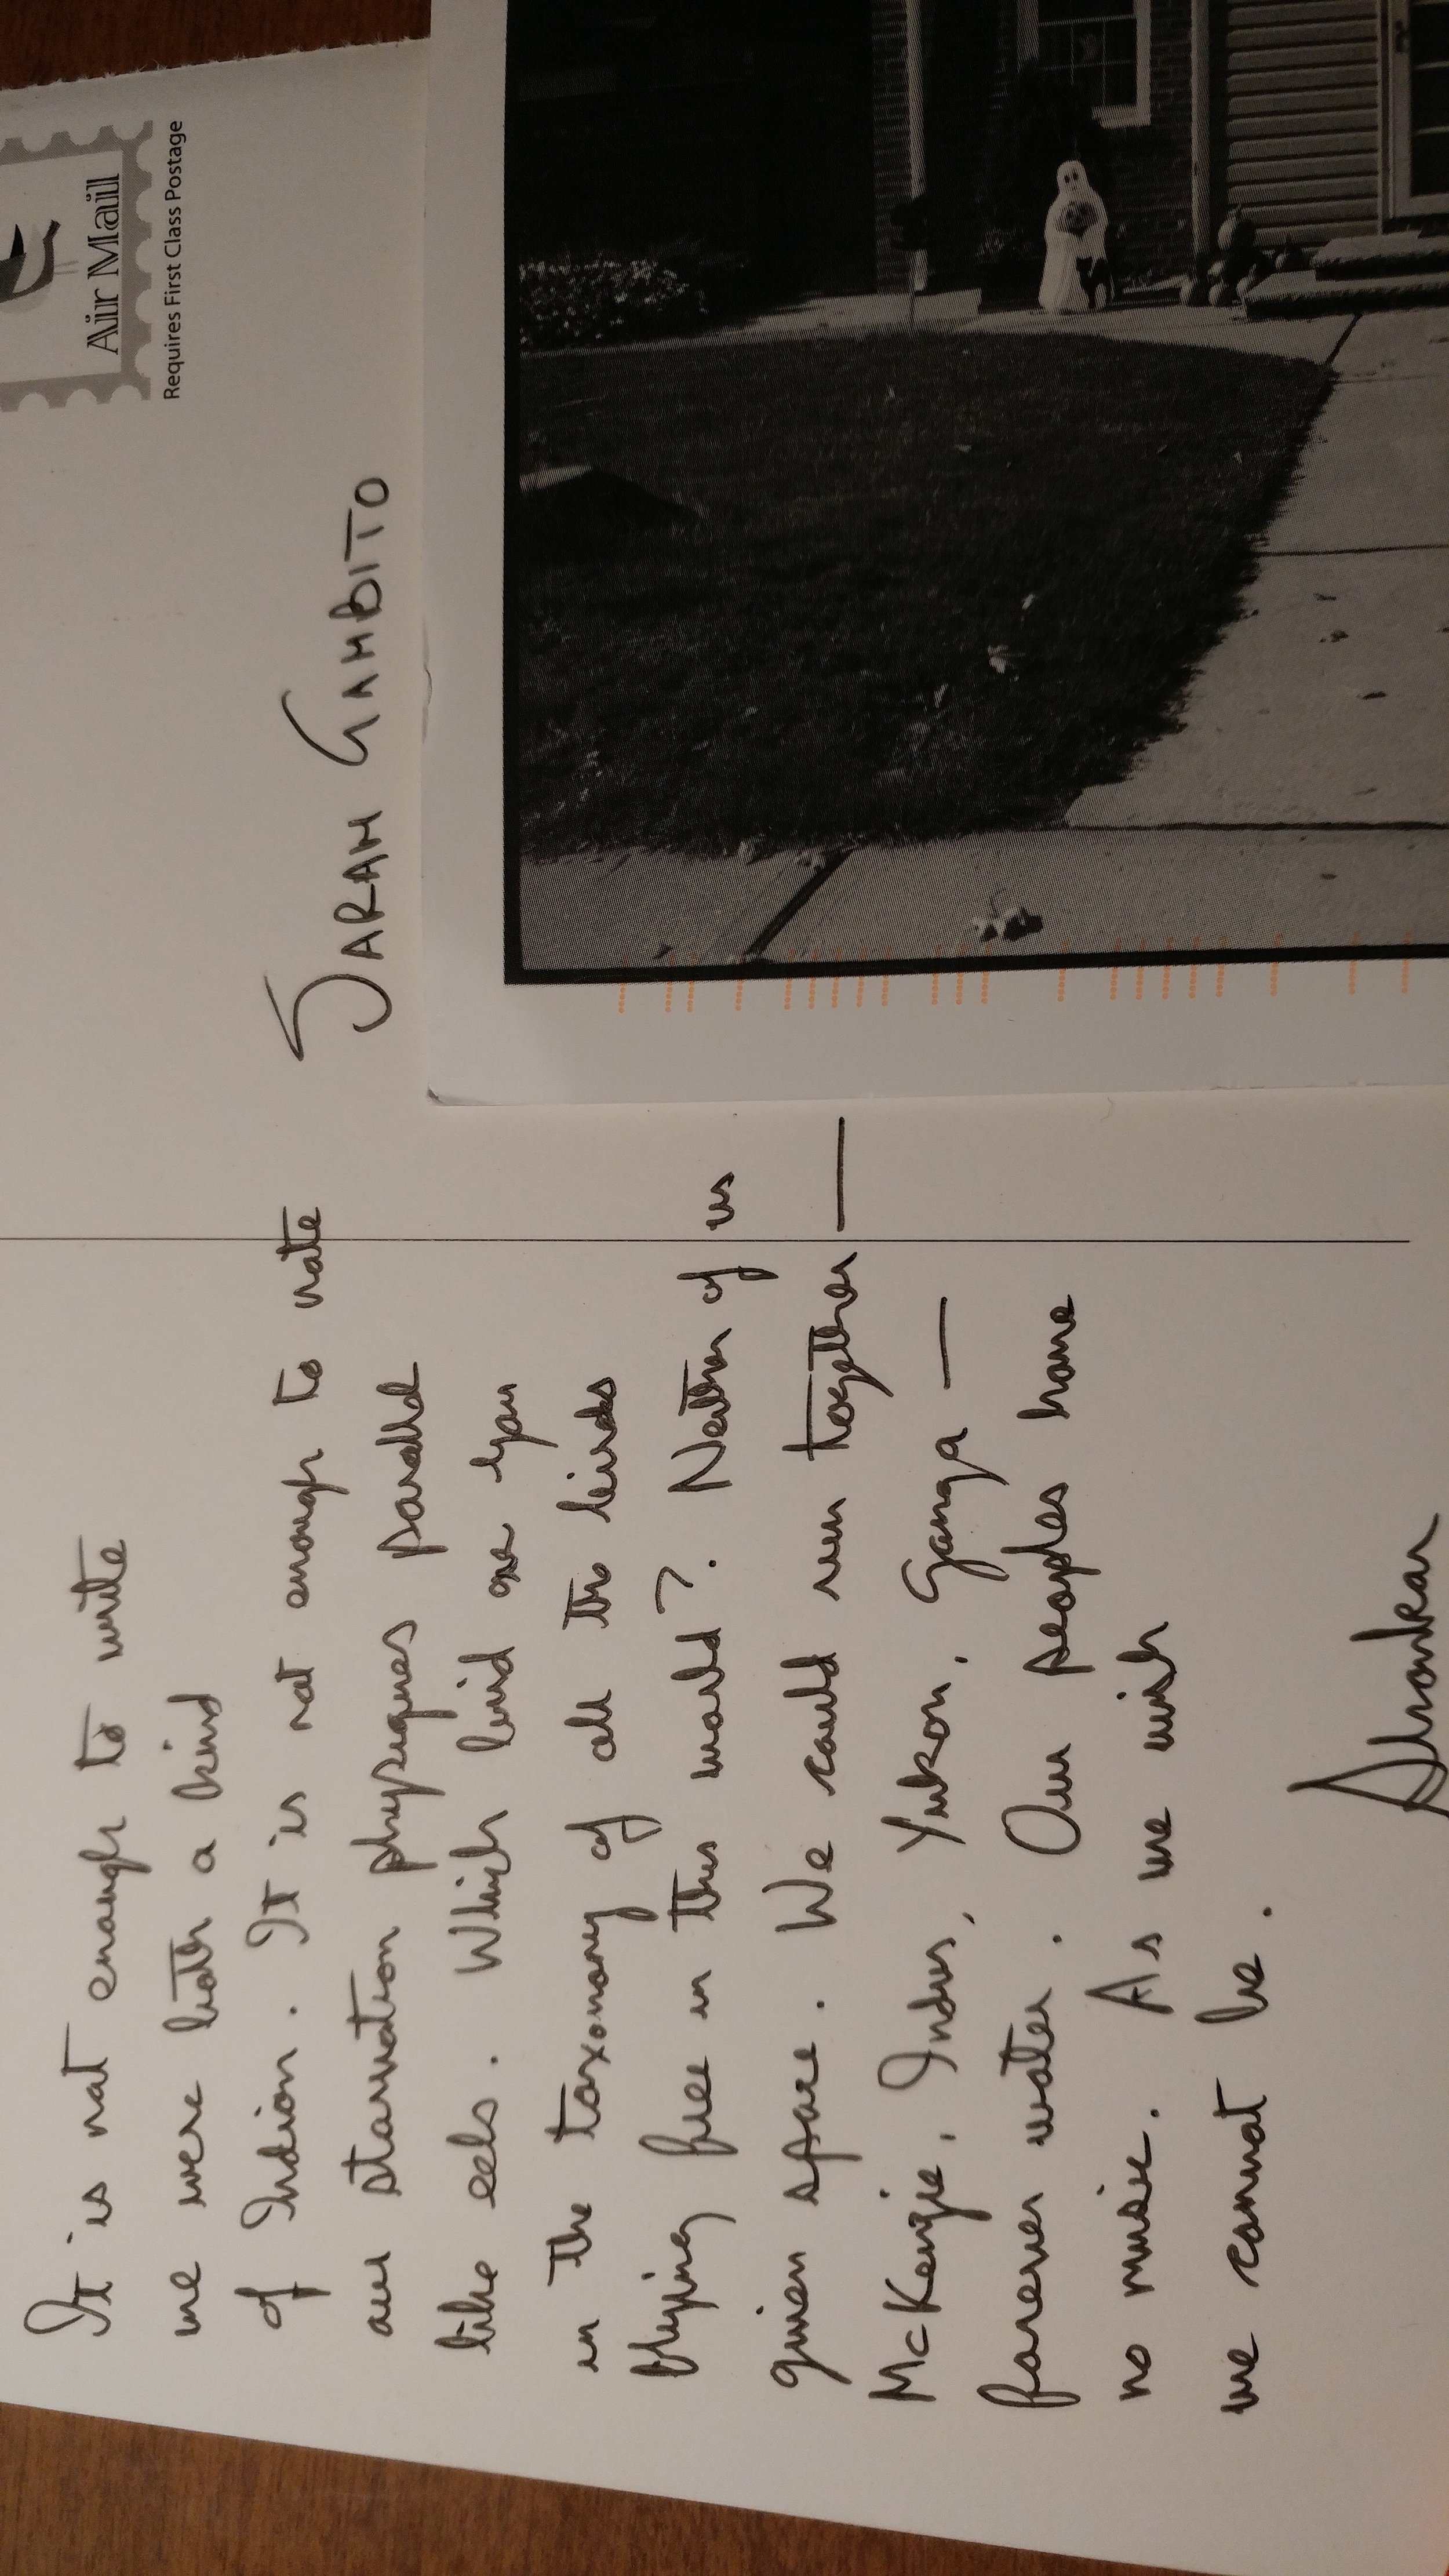 Air Mail
Requires First Class Postage
SARAH GAMBITO
It is not enough to write
we were both a kind
of Indian. It is not enough to note
our starvation physiques parallel
like eels. Which bird are you
in the taxonomy of all the birds
flying free in this world? Neither of us
given space. We could run together —
McKenzie, Indus, Yukon, Ganga —
forever water. Our peoples have
no music. As we wish
we cannot be.